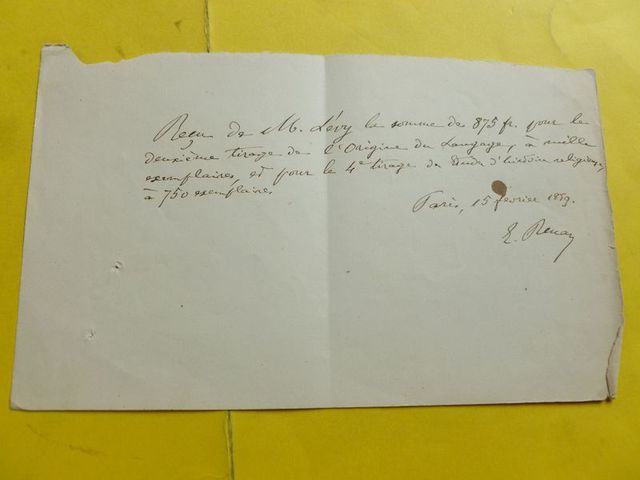 Reçu de M. Lévy la somme de 875 fr. pour le
deuxième tirage de l'Origine du Langage, à mille
exemplaires, et pour le 4e tirage des Etudes d'histoire religieuse,
à 750 exemplaires
Paris, 15 février 1859.
E. Renan